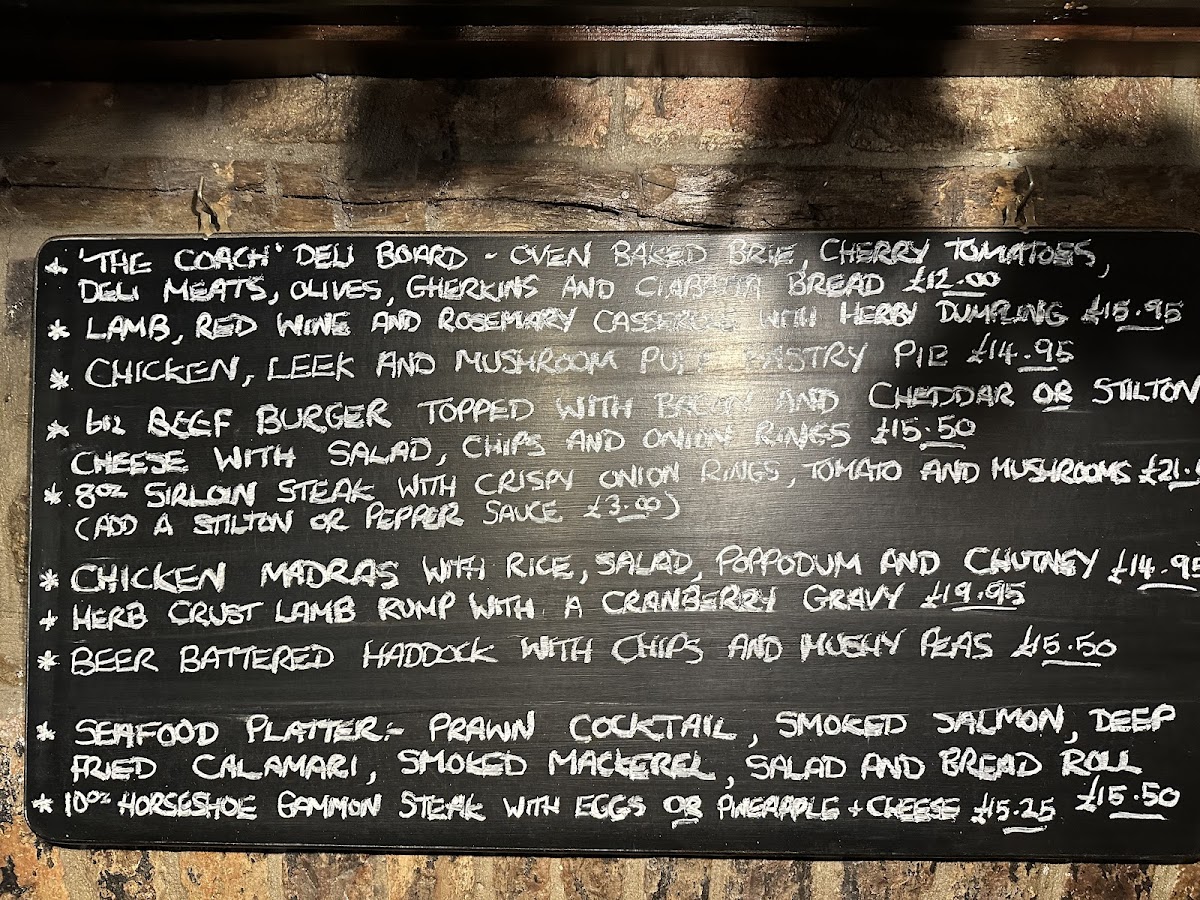 * 'THE COACH' DELI BOARD - OVEN BAKED BRIE, CHERRY TOMATOES,
DELI MEATS, OLIVES, GHERKINS AND CIABATTA BREAD £12.00
* LAMB, RED WINE AND ROSEMARY CASSEROLE WITH HERBY DUMPLING £15.95
* CHICKEN, LEEK AND MUSHROOM PUFF PASTRY PIE £14.95
* 6oz BEEF BURGER TOPPED WITH BACON AND CHEDDAR OR STILTON
CHEESE WITH SALAD, CHIPS AND ONION RINGS £15.50
* 8oz SIRLOIN STEAK WITH CRISPY ONION RINGS, TOMATO AND MUSHROOMS
(ADD A STILTON OR PEPPER SAUCE £3.00)
* CHICKEN MADRAS WITH RICE, SALAD, POPPODUM AND CHUTNEY £14.95
* HERB CRUST LAMB RUMP WITH A CRANBERRY GRAVY £19.95
* BEER BATTERED HADDOCK WITH CHIPS AND MUSHY PEAS £15.50
* SEAFOOD PLATTER:- PRAWN COCKTAIL, SMOKED SALMON, DEEP
FRIED CALAMARI, SMOKED MACKEREL, SALAD AND BREAD ROLL
£15.50
* 10oz HORSESHOE GAMMON STEAK WITH EGGS OR PINEAPPLE + CHEESE £15.25